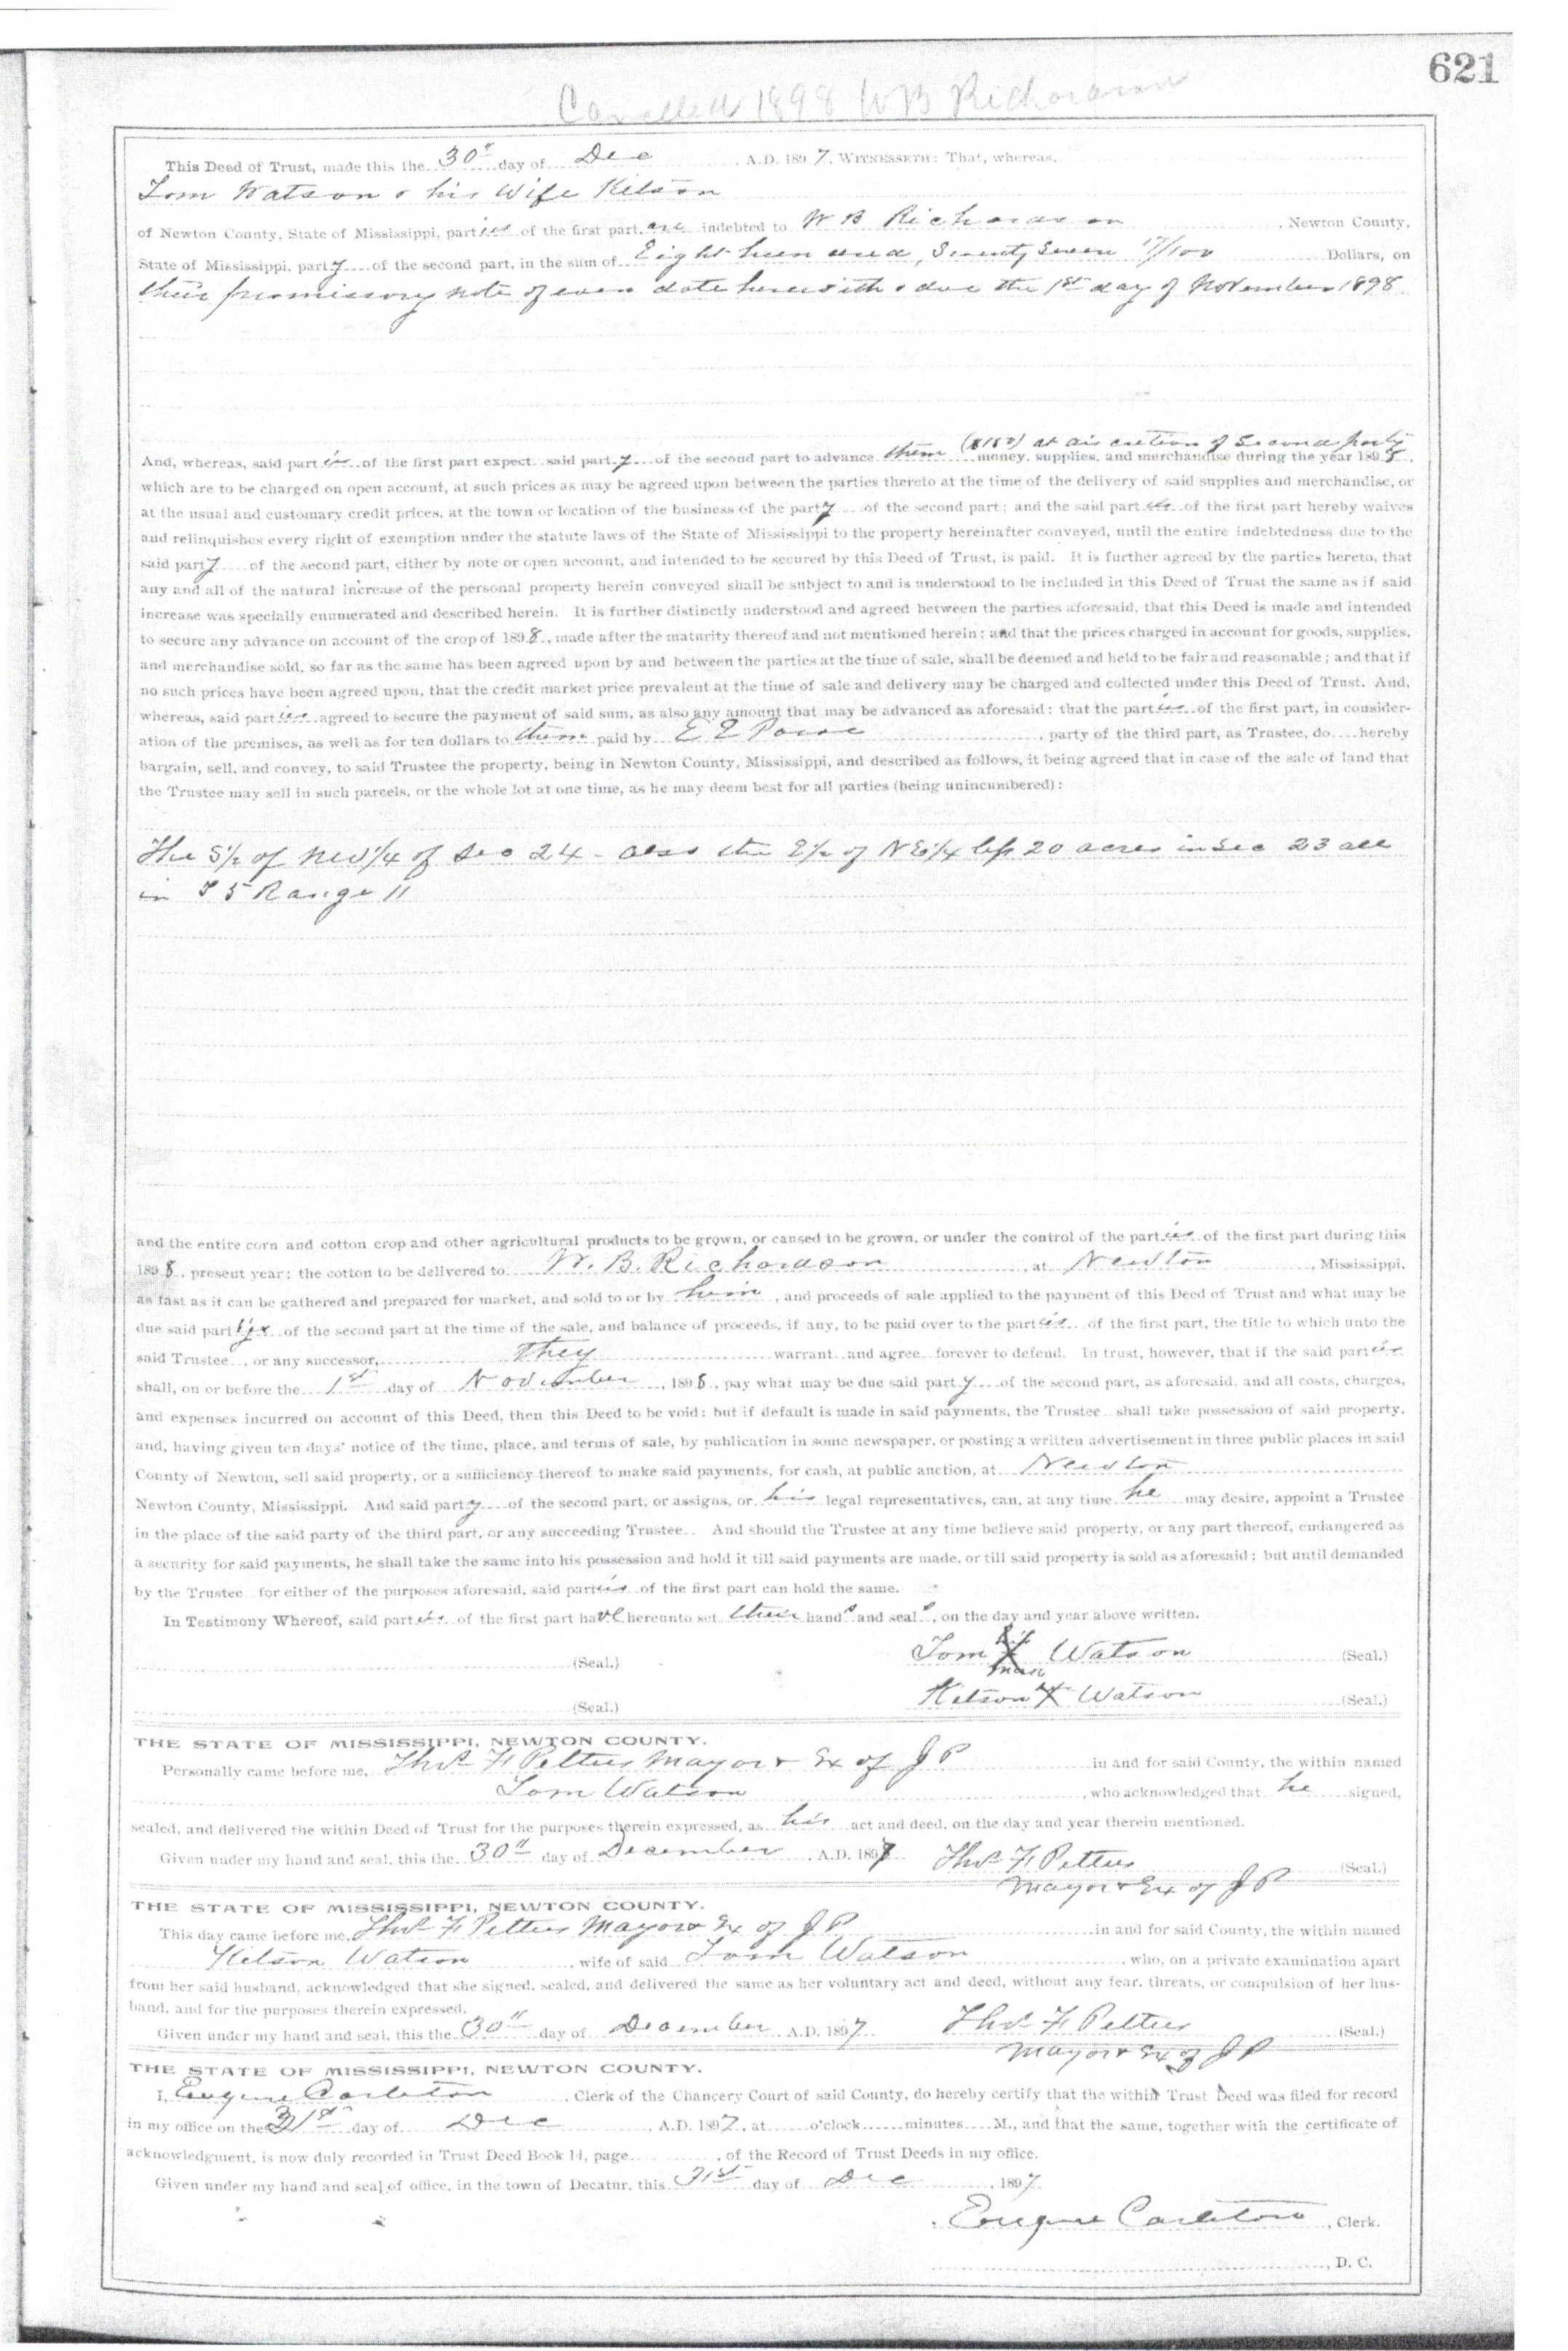 621
Cancelled 1898 WB Richardson
This Deed of Trust, made this the 30" day of Dec A.D. 1897. WITNESSETH: That, whereas,
Tom Watson & his Wife Kitson
of Newton County, State of Mississippi, parties of the first part, are indebted to W B Richardson, Newton County,
State of Mississippi, party of the second part, in the sum of Eight hundred, Seventy Seven 17/100 Dollars, on
their promissory note of even date herewith & due the 1st day of November 1898
And, whereas, said parties of the first part expect said party of the second part to advance them ($150) at discretion of Second party money, supplies, and merchandise during the year 1898,
which are to be charged on open account, at such prices as may be agreed upon between the parties thereto at the time of the delivery of said supplies and merchandise, or
at the usual and customary credit prices, at the town or location of the business of the party of the second part; and the said parties of the first part hereby waives
and relinquishes every right of exemption under the statute laws of the State of Mississippi to the property hereinafter conveyed, until the entire indebtedness due to the
said party of the second part, either by note or open account, and intended to be secured by this Deed of Trust, is paid. It is further agreed by the parties hereto, that
any and all of the natural increase of the personal property herein conveyed shall be subject to and is understood to be included in this Deed of Trust the same as if said
increase was specially enumerated and described herein. It is further distinctly understood and agreed between the parties aforesaid, that this Deed is made and intended
to secure any advance on account of the crop of 1898, made after the maturity thereof and not mentioned herein; and that the prices charged in account for goods, supplies,
and merchandise sold, so far as the same has been agreed upon by and between the parties at the time of sale, shall be deemed and held to be fair and reasonable; and that if
no such prices have been agreed upon, that the credit market price prevalent at the time of sale and delivery may be charged and collected under this Deed of Trust. And,
whereas, said parties agreed to secure the payment of said sum, as also any amount that may be advanced as aforesaid: that the parties of the first part, in consider-
ation of the premises, as well as for ten dollars to them paid by E E , party of the third part, as Trustee, do hereby
bargain, sell, and convey, to said Trustee the property, being in Newton County, Mississippi, and described as follows, it being agreed that in case of the sale of land that
the Trustee may sell in such parcels, or the whole lot at one time, as he may deem best for all parties (being unincumbered):
The S½ of NW¼ of Sec 24 - also the E½ of NE¼ less 20 acres in Sec 23 all
in T 5 Range 11
and the entire corn and cotton crop and other agricultural products to be grown, or caused to be grown, or under the control of the parties of the first part during this
1898, present year; the cotton to be delivered to W. B. Richardson, at Newton, Mississippi,
as fast as it can be gathered and prepared for market, and sold to or by him, and proceeds of sale applied to the payment of this Deed of Trust and what may be
due said party of the second part at the time of the sale, and balance of proceeds, if any, to be paid over to the parties of the first part, the title to which unto the
said Trustee, or any successor, they warrant and agree forever to defend. In trust, however, that if the said parties
shall, on or before the 1st day of November, 1898, pay what may be due said party of the second part, as aforesaid, and all costs, charges,
and expenses incurred on account of this Deed, then this Deed to be void; but if default is made in said payments, the Trustee shall take possession of said property,
and, having given ten days' notice of the time, place, and terms of sale, by publication in some newspaper, or posting a written advertisement in three public places in said
County of Newton, sell said property, or a sufficiency thereof to make said payments, for cash, at public auction, at Newton
Newton County, Mississippi. And said party of the second part, or assigns, or his legal representatives, can, at any time he may desire, appoint a Trustee
in the place of the said party of the third part, or any succeeding Trustee. And should the Trustee at any time believe said property, or any part thereof, endangered as
a security for said payments, he shall take the same into his possession and hold it till said payments are made, or till said property is sold as aforesaid; but until demanded
by the Trustee for either of the purposes aforesaid, said parties of the first part can hold the same.
In Testimony Whereof, said parties of the first part have hereunto set their hands and seals, on the day and year above written.
(Seal.) Tom his X mark Watson (Seal.)
(Seal.) Kitson X Watson (Seal.)
THE STATE OF MISSISSIPPI, NEWTON COUNTY.
Personally came before me, Thos F Pettus Mayor & Ex of J P in and for said County, the within named
Tom Watson, who acknowledged that he signed,
sealed, and delivered the within Deed of Trust for the purposes therein expressed, as his act and deed, on the day and year therein mentioned.
Given under my hand and seal, this the 30" day of December, A.D. 1897 Thos F Pettus (Seal.)
Mayor & Ex of J P
THE STATE OF MISSISSIPPI, NEWTON COUNTY.
This day came before me, Thos F Pettus Mayor & Ex of J P in and for said County, the within named
Kitson Watson, wife of said Tom Watson, who, on a private examination apart
from her said husband, acknowledged that she signed, sealed, and delivered the same as her voluntary act and deed, without any fear, threats, or compulsion of her hus-
band, and for the purposes therein expressed.
Given under my hand and seal, this the 30" day of December A.D. 1897 Thos F Pettus (Seal.)
Mayor & Ex of J P
THE STATE OF MISSISSIPPI, NEWTON COUNTY.
I, Eugene Carleton, Clerk of the Chancery Court of said County, do hereby certify that the within Trust Deed was filed for record
in my office on the 31st day of Dec, A.D. 1897, at o'clock minutes M., and that the same, together with the certificate of
acknowledgment, is now duly recorded in Trust Deed Book 14, page , of the Record of Trust Deeds in my office.
Given under my hand and seal of office, in the town of Decatur, this 31st day of Dec, 1897
Eugene Carleton, Clerk.
, D. C.